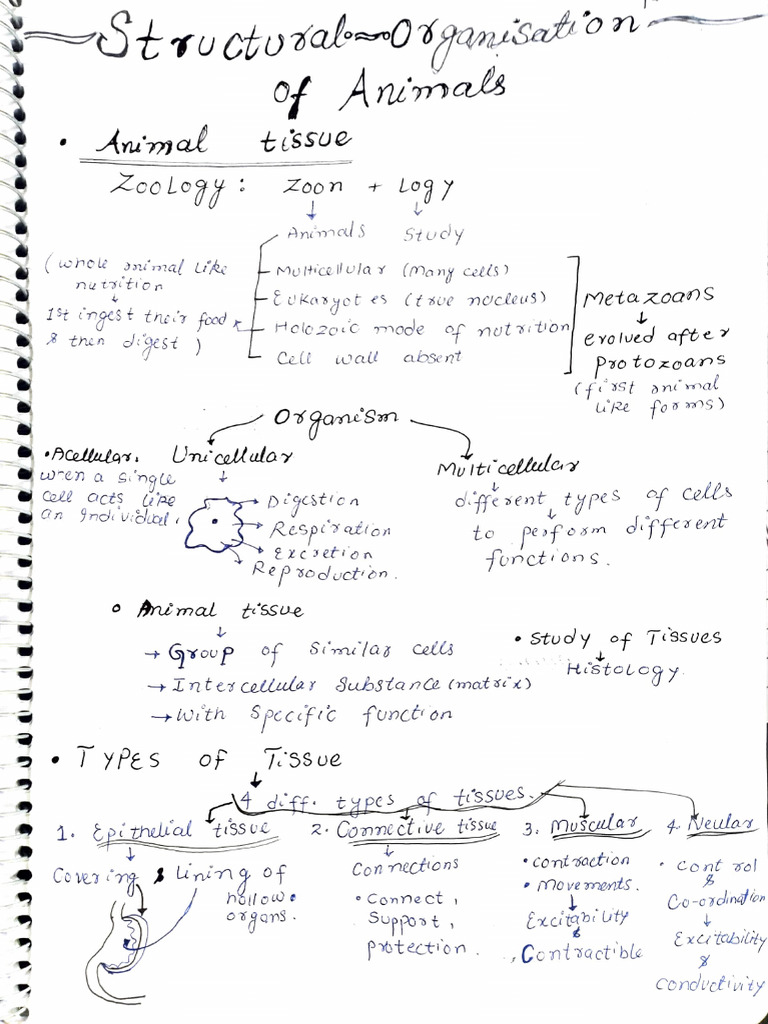 Structural Organisation
of Animals
• Animal tissue
Zoology: Zoon + Logy
Animals Study
(whole animal like
nutrition
1st ingest their food
& then digest)
Multicellular (Many cells)
Eukaryotes (true nucleus)
Holozoic mode of nutrition
Cell wall absent
Metazoans
evolved after
Protozoans
(first animal
like forms)
Organism
• Acellular. Unicellular
when a single
cell acts like
an individual.
Digestion
Respiration
Excretion
Reproduction.
Multicellular
different types of cells
to perform different
functions.
Animal tissue
→ Group of similar cells
→ Intercellular substance (matrix)
→ With specific function
• Study of Tissues
Histology
• Types of Tissue
4 diff. types of tissues.
1. Epithelial tissue
Covering & lining of
hollow
organs.
2. Connective tissue
Connections
• Connect,
Support,
protection.
3. Muscular
• contraction
• Movements.
Excitability
&
Contractible
4. Neular
• Control
&
Co-ordination
Excitability
&
conductivity